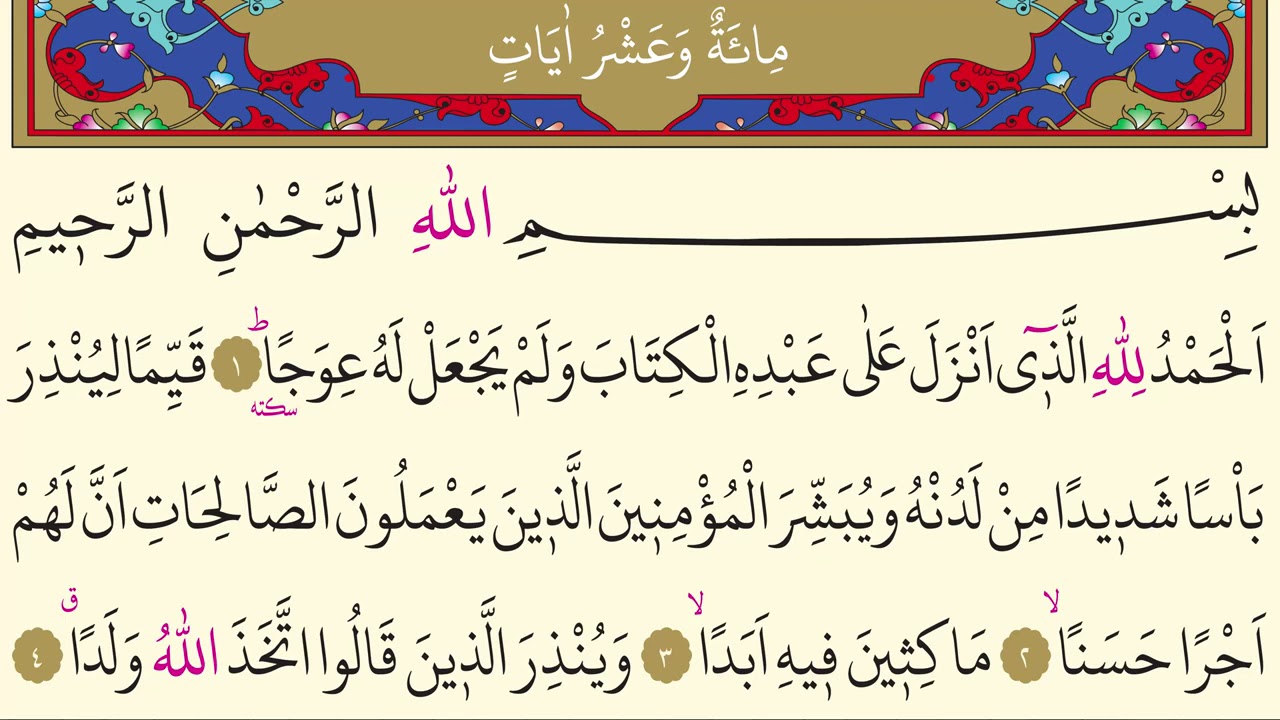 مِائَةٌ وَعَشْرُ اٰيَاتٍ
بِسْمِ اللّٰهِ الرَّحْمٰنِ الرَّحٖيمِ
اَلْحَمْدُ لِلّٰهِ الَّذٖٓى اَنْزَلَ عَلٰى عَبْدِهِ الْكِتَابَ وَلَمْ يَجْعَلْ لَهُ عِوَجًا ؕ سكته ١ قَيِّمًا لِيُنْذِرَ
بَاْسًا شَدٖيدًا مِنْ لَدُنْهُ وَيُبَشِّرَ الْمُؤْمِنٖينَ الَّذٖينَ يَعْمَلُونَ الصَّالِحَاتِ اَنَّ لَهُمْ
اَجْرًا حَسَنًا ۙ ٢ مَاكِثٖينَ فٖيهِ اَبَدًا ۙ ٣ وَيُنْذِرَ الَّذٖينَ قَالُوا اتَّخَذَ اللّٰهُ وَلَدًا ق ٤